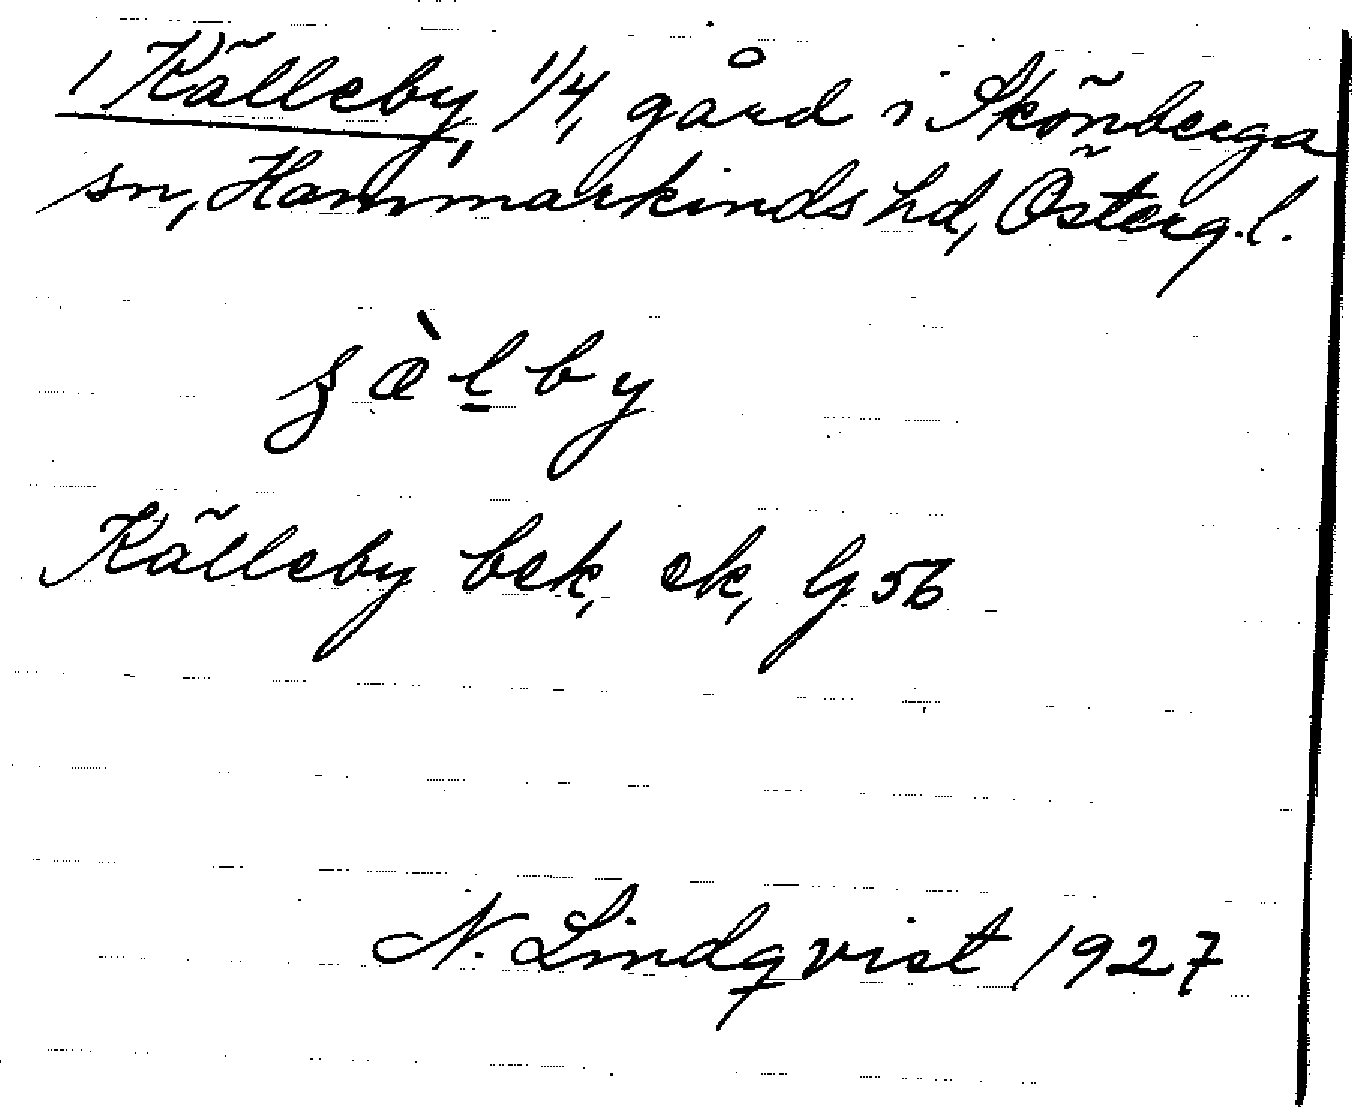 1 Källeby, 1/4, gård i Skönberga
sn, Hammarkinds hd, Österg. l.
ʂæ̀l̠by
Källeby bek, ek, G 56
N. Lindqvist 1927